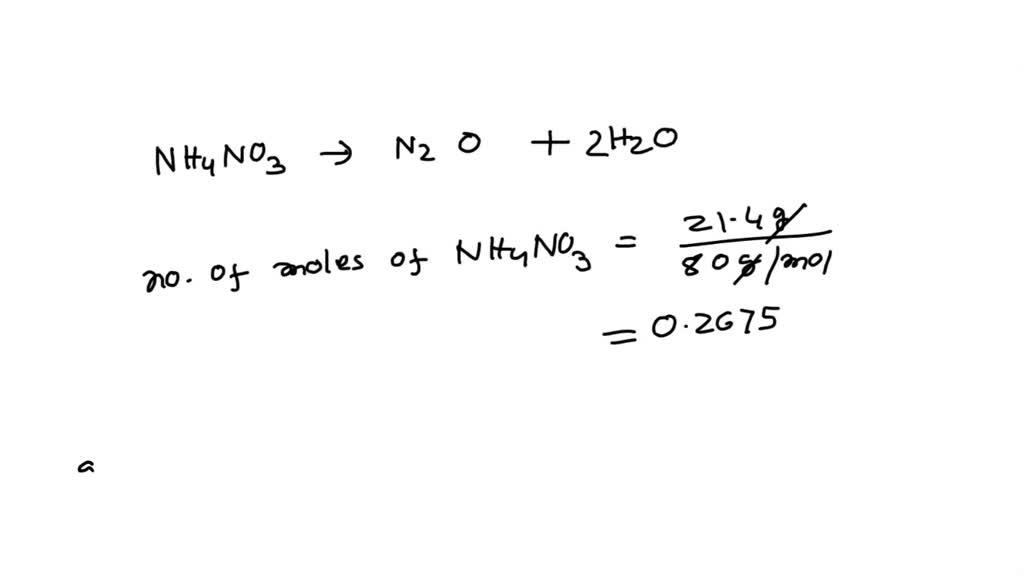 NH4NO3 → N2O + 2H2O
no. of moles of NH4NO3 = 21.4g / 80g/mol
= 0.2675
a